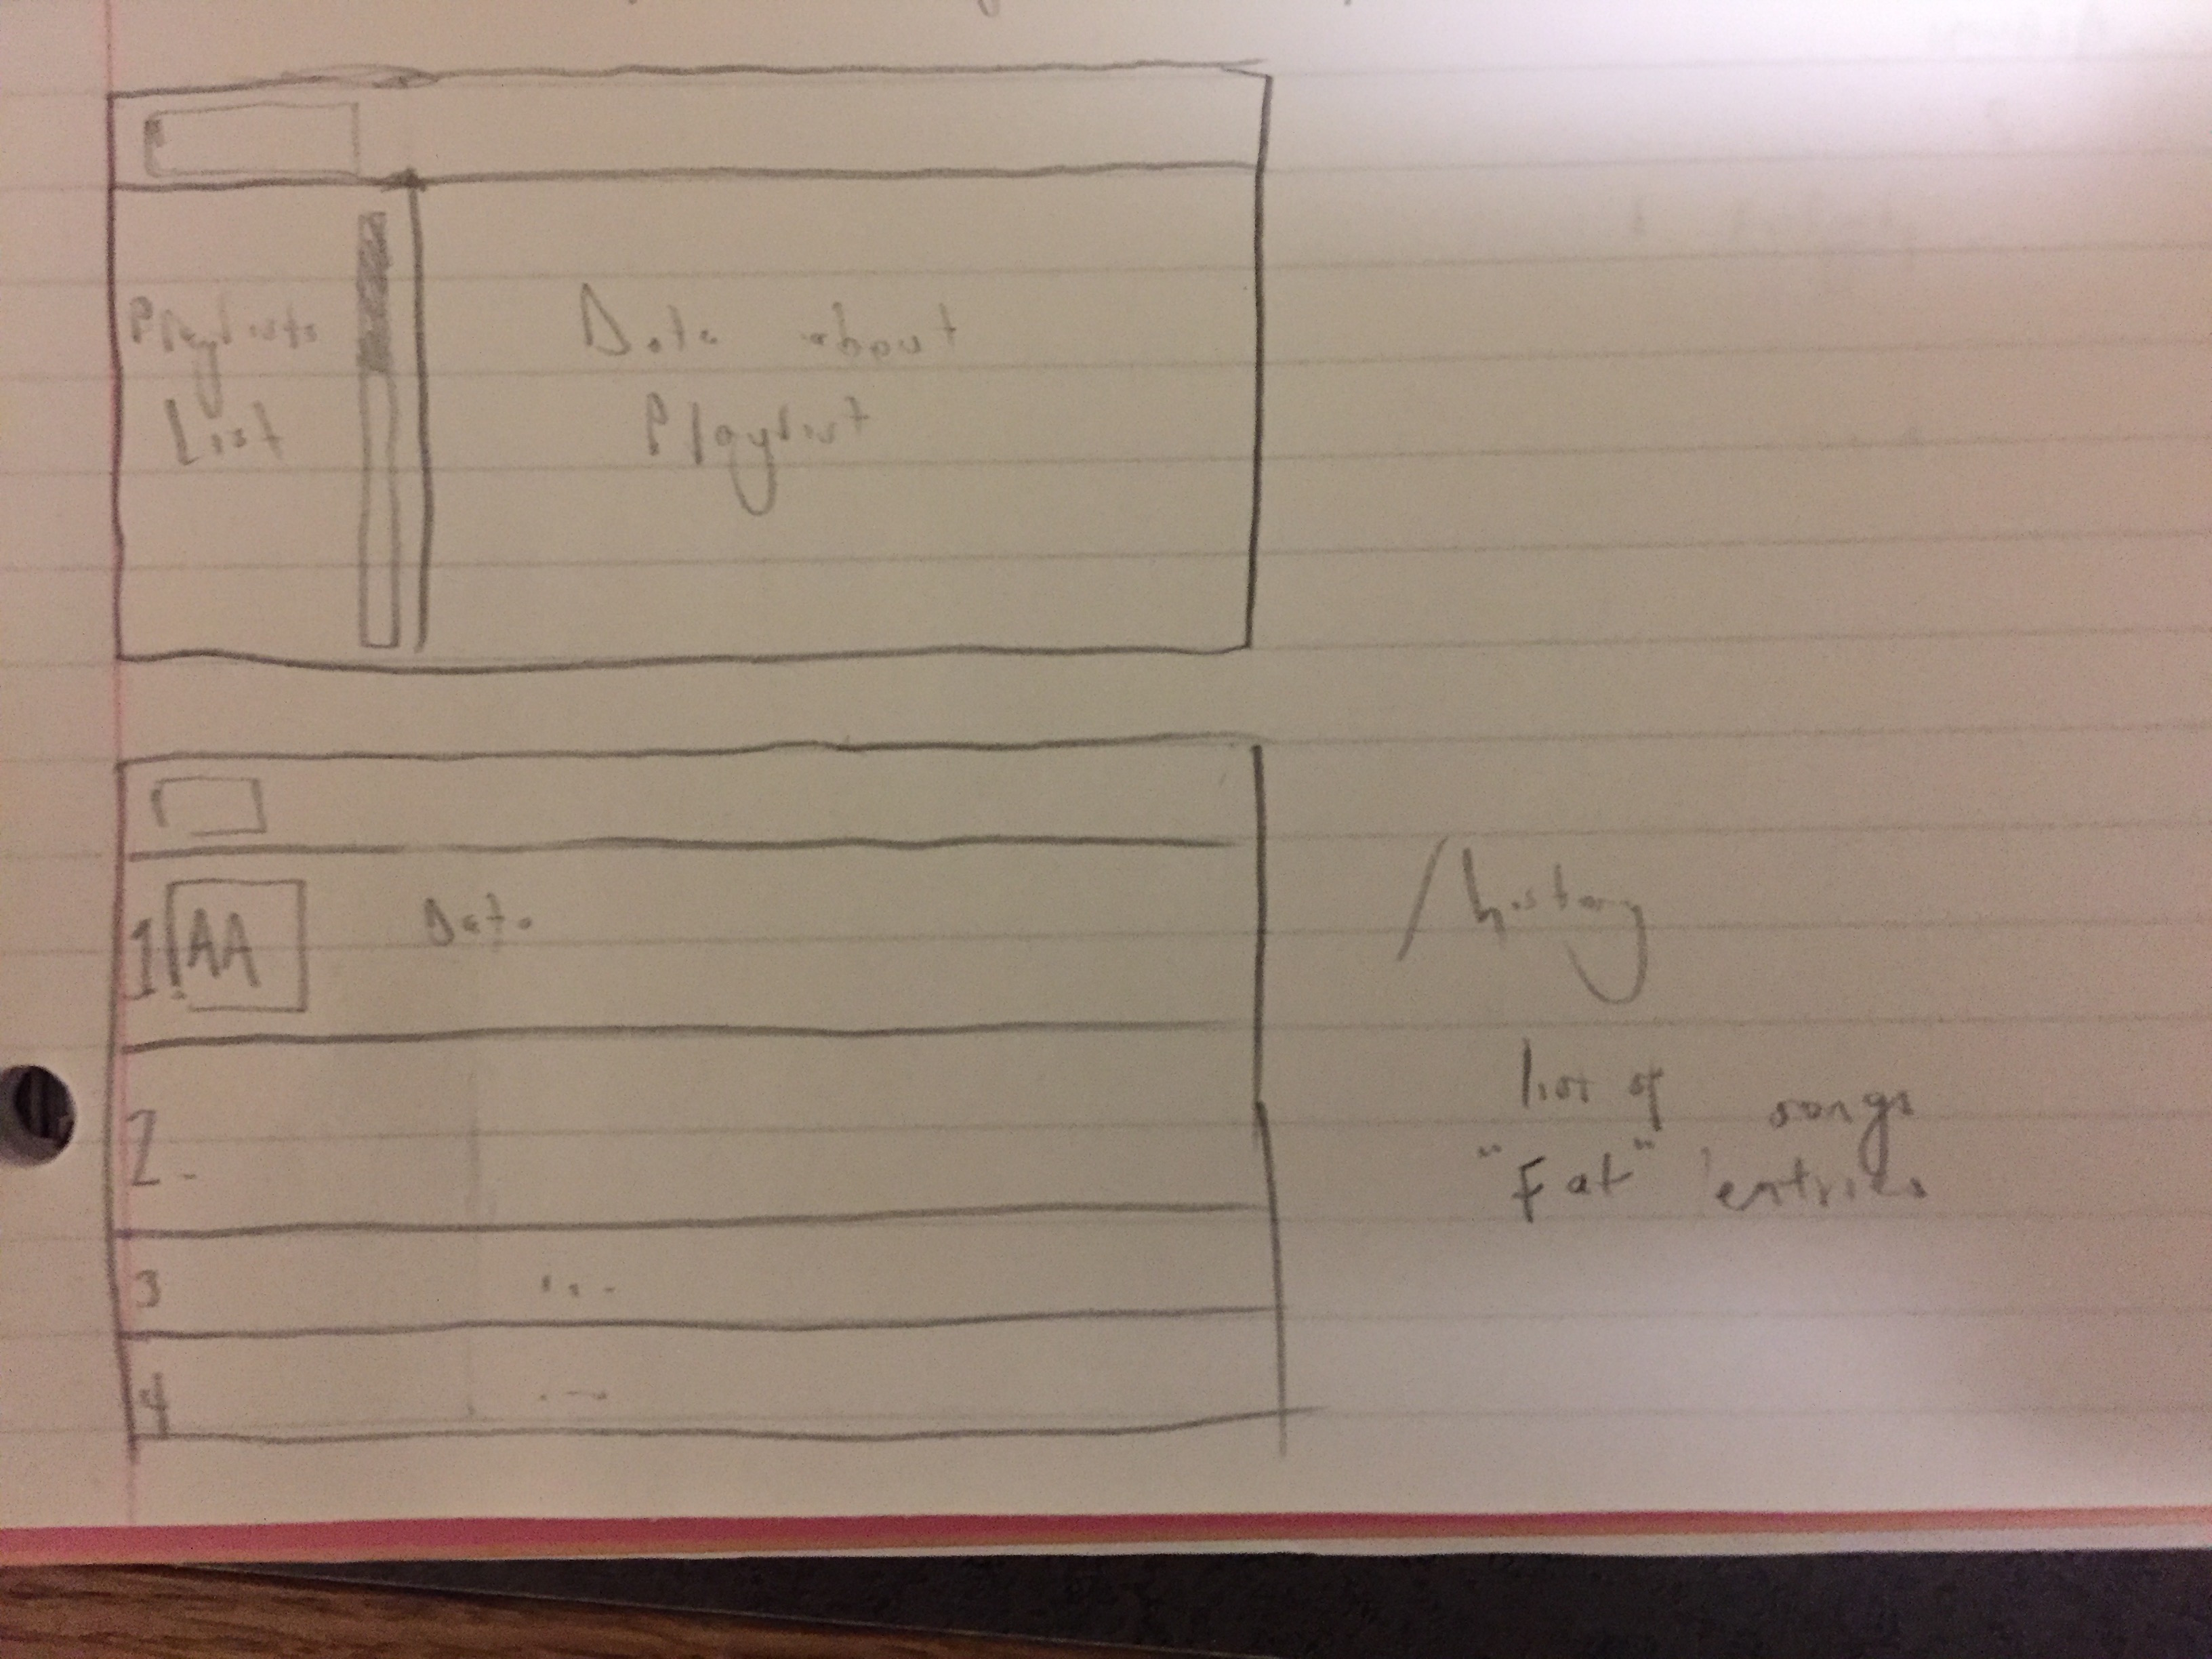 Playlists
List
Data about
Playlist
1 AA Data
2.
3 ...
4 ...
/history
list of songs
"Fat" entries